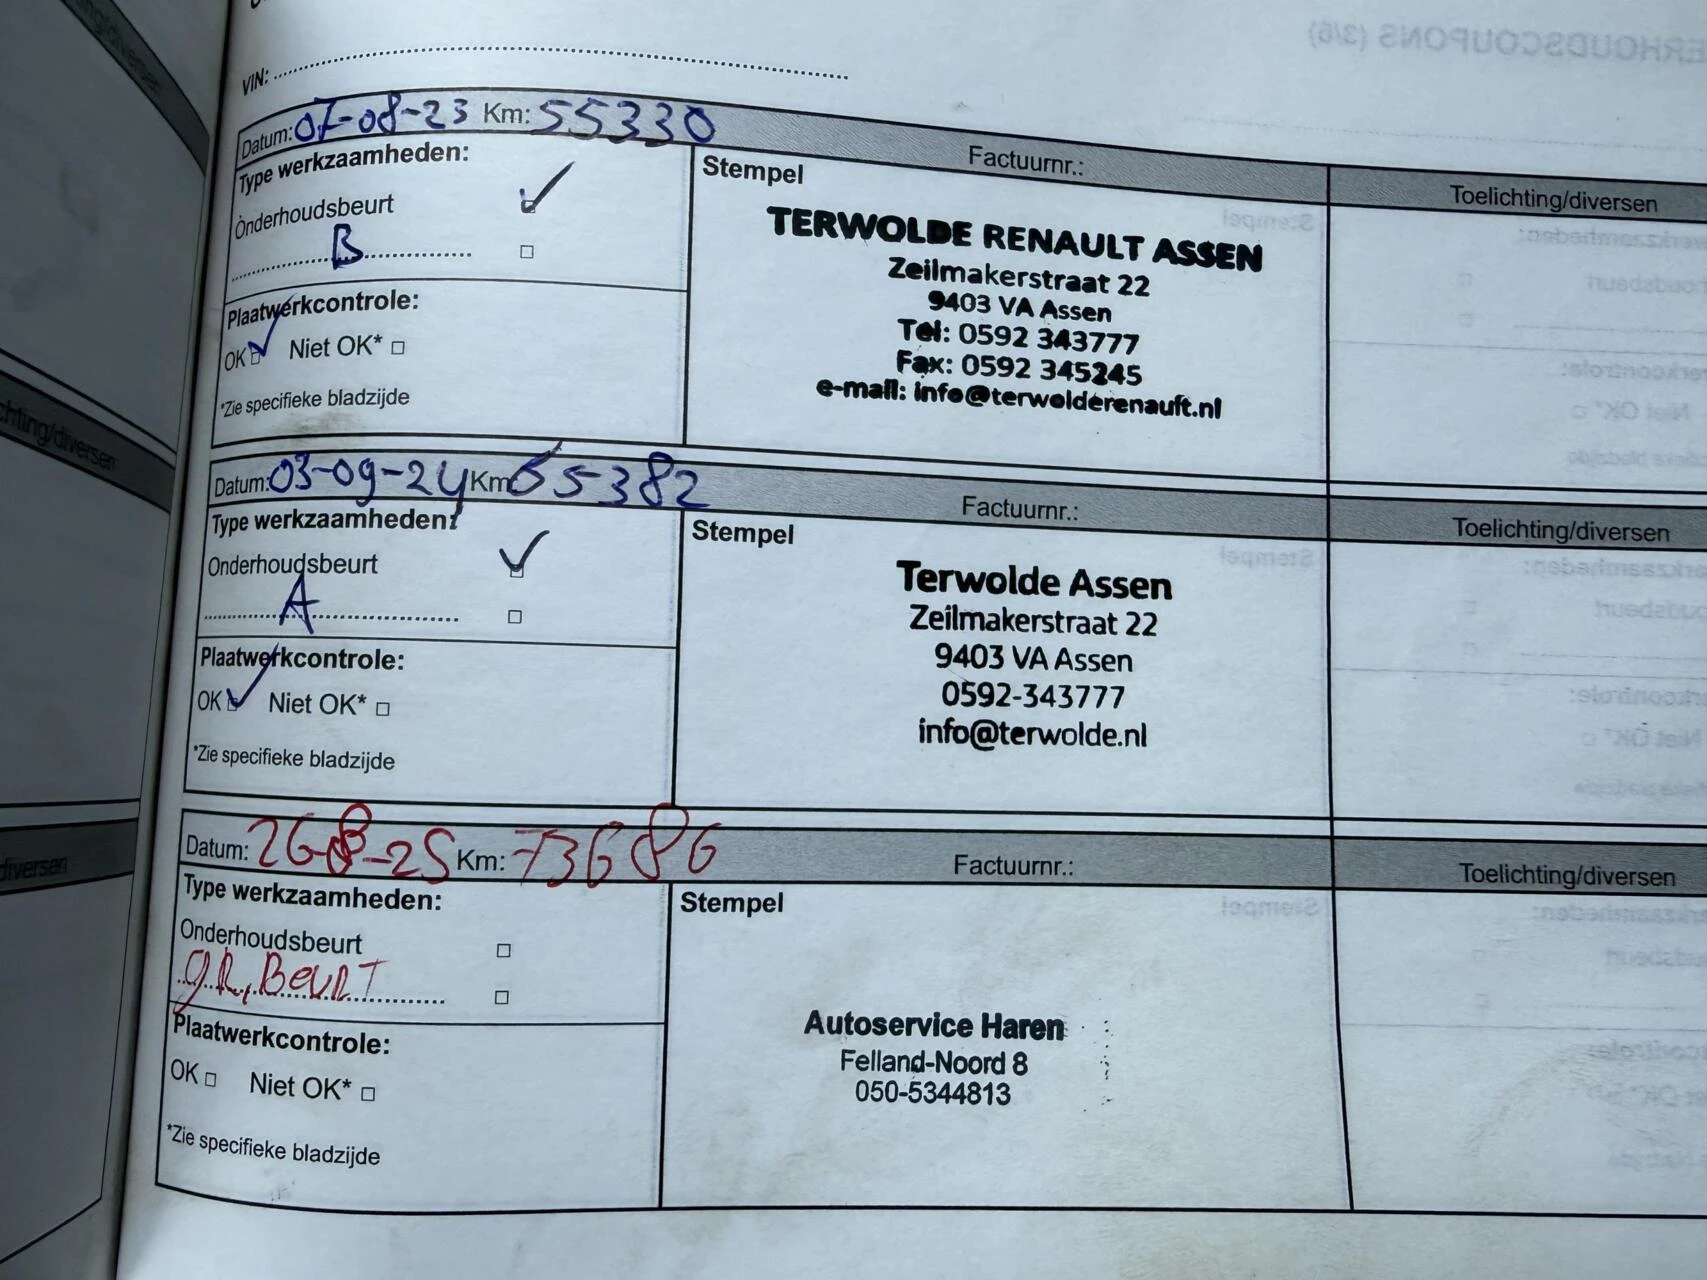 VIN:
Datum: 07-08-23 Km: 55330 Factuurnr.: Toelichting/diversen
Type werkzaamheden:
Onderhoudsbeurt
B
Plaatwerkcontrole:
OK Niet OK*
*Zie specifieke bladzijde
Stempel
TERWOLDE RENAULT ASSEN
Zeilmakerstraat 22
9403 VA Assen
Tel: 0592 343777
Fax: 0592 345245
e-mail: info@terwolderenault.nl
Datum: 03-09-24 Km: 65382 Factuurnr.: Toelichting/diversen
Type werkzaamheden:
Onderhoudsbeurt
A
Plaatwerkcontrole:
OK Niet OK*
*Zie specifieke bladzijde
Stempel
Terwolde Assen
Zeilmakerstraat 22
9403 VA Assen
0592-343777
info@terwolde.nl
Datum: 26-8-25 Km: 73686 Factuurnr.: Toelichting/diversen
Type werkzaamheden:
Onderhoudsbeurt
gR, BeuRT
Plaatwerkcontrole:
OK Niet OK*
*Zie specifieke bladzijde
Stempel
Autoservice Haren
Felland-Noord 8
050-5344813